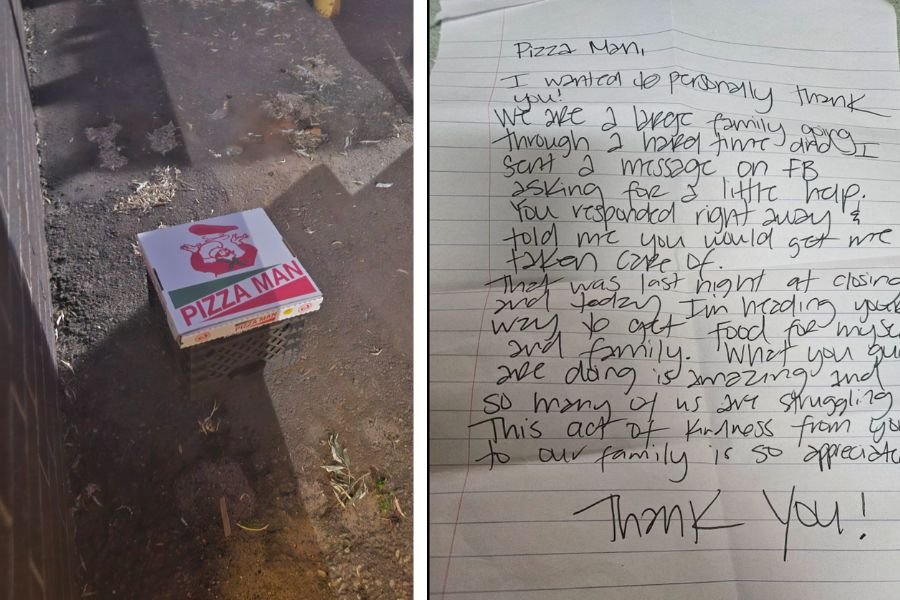 PIZZA MAN
PIZZA MAN
Pizza Man,
I wanted to personally thank
you!
We are a large family going
through a hard time and I
sent a message on FB
asking for a little help.
You responded right away &
told me you would get me
taken care of.
That was last night at closing
and today I'm heading your
way to get food for myse
and family. What you gu
are doing is amazing and
so many of us are struggling
This act of kindness from yo
to our family is so appreciate
Thank You!